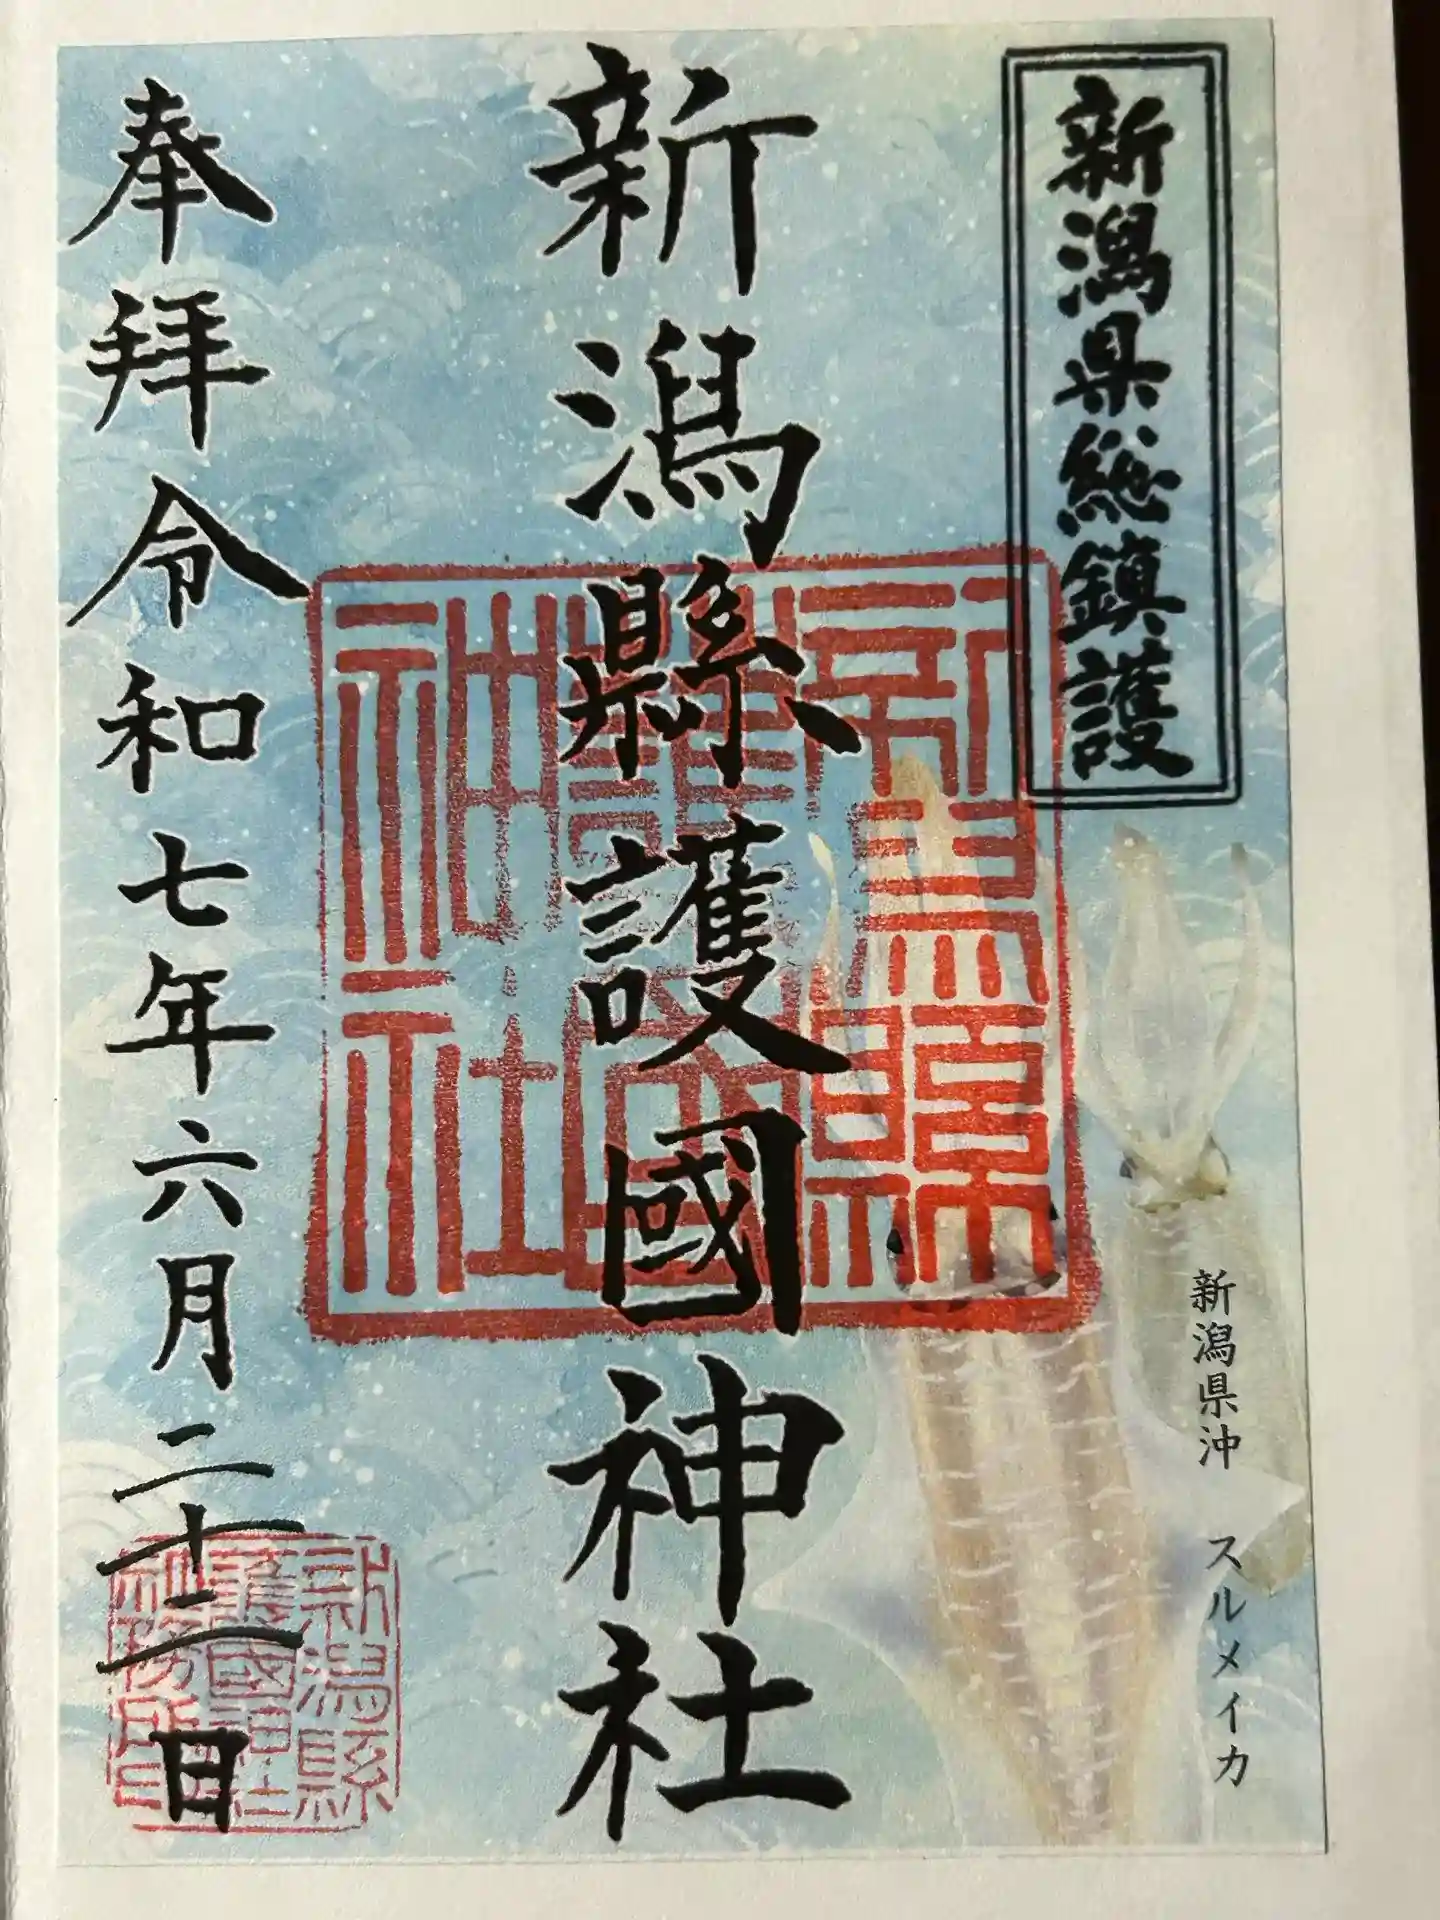 新潟県総鎮護
新潟県沖　スルメイカ
新潟縣護國神社
新潟縣
護國
神社
奉拝令和七年六月二十二日
新潟縣
護國神社
社務所印